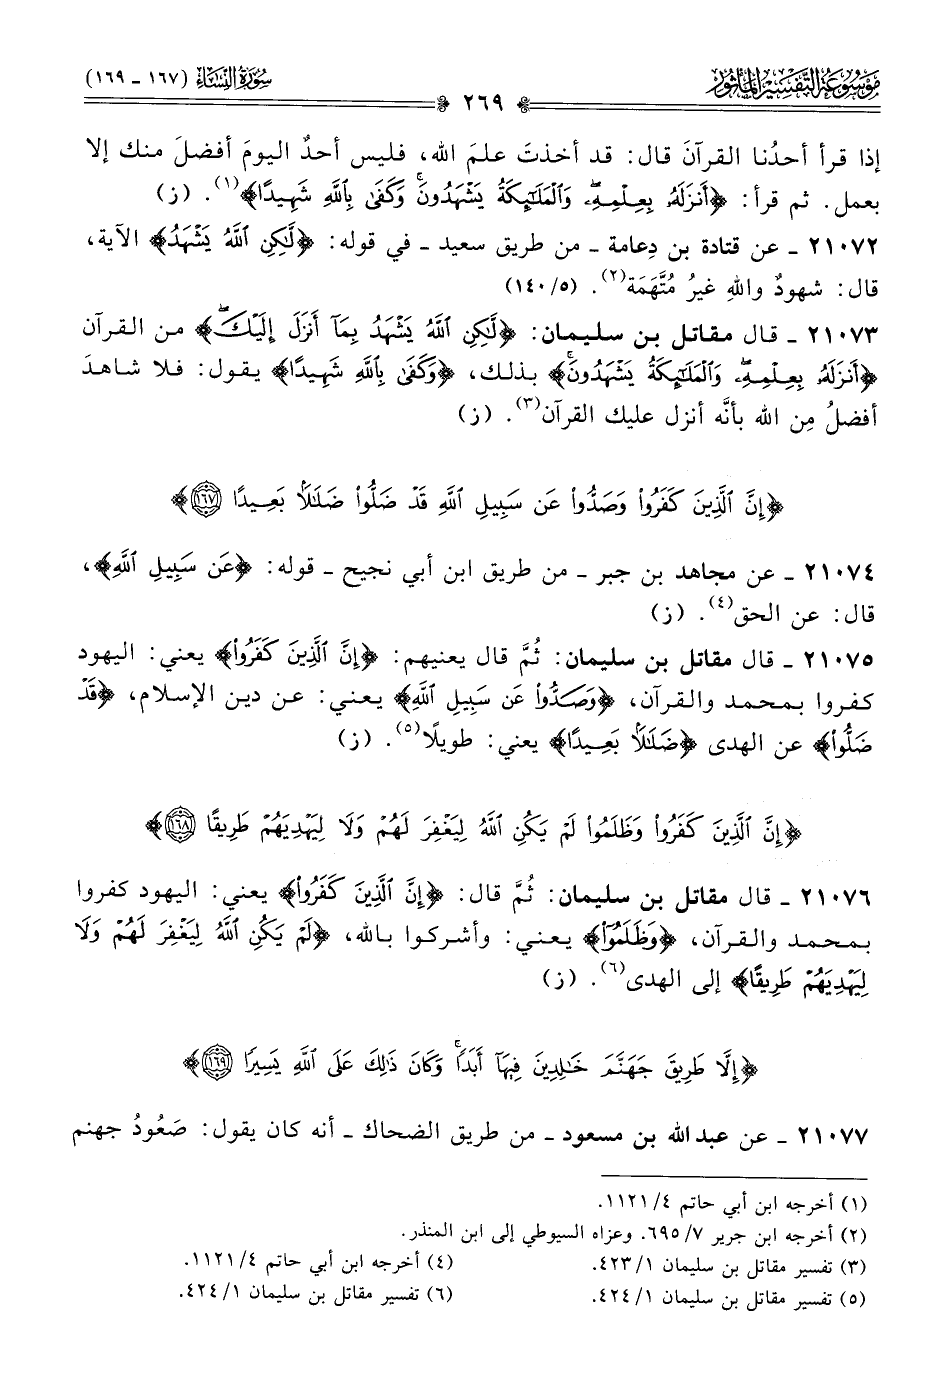 مَوْسُوعَة التَّفْسِير المَأْثُور
سُورَةُ النِّسَاءِ (١٦٧ - ١٦٩)
٢٦٩
إذا قرأ أحدُنا القرآنَ قال: قد أخذتَ علمَ الله، فليس أحدٌ اليومَ أفضلَ منك إلا
بعمل. ثم قرأ: ﴿أَنزَلَهُۥ بِعِلْمِهِۦۖ وَٱلْمَلَٰٓئِكَةُ يَشْهَدُونَۚ وَكَفَىٰ بِٱللَّهِ شَهِيدًا﴾(١). (ز)
٢١٠٧٢ ـ عن قتادة بن دِعامة ـ من طريق سعيد ـ في قوله: ﴿لَّٰكِنِ ٱللَّهُ يَشْهَدُ﴾ الآية،
قال: شهودٌ واللهِ غيرُ مُتَّهَمَة(٢). (١٤٠/٥)
٢١٠٧٣ ـ قال مقاتل بن سليمان: ﴿لَّٰكِنِ ٱللَّهُ يَشْهَدُ بِمَآ أَنزَلَ إِلَيْكَۖ﴾ من القرآن
﴿أَنزَلَهُۥ بِعِلْمِهِۦۖ وَٱلْمَلَٰٓئِكَةُ يَشْهَدُونَۚ﴾ بذلك، ﴿وَكَفَىٰ بِٱللَّهِ شَهِيدًا﴾ يقول: فلا شاهدَ
أفضلُ مِن الله بأنَّه أنزل عليك القرآن(٣). (ز)
﴿إِنَّ ٱلَّذِينَ كَفَرُوا۟ وَصَدُّوا۟ عَن سَبِيلِ ٱللَّهِ قَدْ ضَلُّوا۟ ضَلَٰلًۢا بَعِيدًا ١٦٧﴾
٢١٠٧٤ ـ عن مجاهد بن جبر ـ من طريق ابن أبي نجيح ـ قوله: ﴿عَن سَبِيلِ ٱللَّهِ﴾،
قال: عن الحق(٤). (ز)
٢١٠٧٥ ـ قال مقاتل بن سليمان: ثُمَّ قال يعنيهم: ﴿إِنَّ ٱلَّذِينَ كَفَرُوا۟﴾ يعني: اليهود
كفروا بمحمد والقرآن، ﴿وَصَدُّوا۟ عَن سَبِيلِ ٱللَّهِ﴾ يعني: عن دين الإسلام، ﴿قَدْ
ضَلُّوا۟﴾ عن الهدى ﴿ضَلَٰلًۢا بَعِيدًا﴾ يعني: طويلًا(٥). (ز)
﴿إِنَّ ٱلَّذِينَ كَفَرُوا۟ وَظَلَمُوا۟ لَمْ يَكُنِ ٱللَّهُ لِيَغْفِرَ لَهُمْ وَلَا لِيَهْدِيَهُمْ طَرِيقًا ١٦٨﴾
٢١٠٧٦ ـ قال مقاتل بن سليمان: ثُمَّ قال: ﴿إِنَّ ٱلَّذِينَ كَفَرُوا۟﴾ يعني: اليهود كفروا
بمحمد والقرآن، ﴿وَظَلَمُوا۟﴾ يعني: وأشركوا بالله، ﴿لَمْ يَكُنِ ٱللَّهُ لِيَغْفِرَ لَهُمْ وَلَا
لِيَهْدِيَهُمْ طَرِيقًا﴾ إلى الهدى(٦). (ز)
﴿إِلَّا طَرِيقَ جَهَنَّمَ خَٰلِدِينَ فِيهَآ أَبَدًاۚ وَكَانَ ذَٰلِكَ عَلَى ٱللَّهِ يَسِيرًا ١٦٩﴾
٢١٠٧٧ ـ عن عبد الله بن مسعود ـ من طريق الضحاك ـ أنه كان يقول: صَعُودُ جهنم
(١) أخرجه ابن أبي حاتم ٤/ ١١٢١.
(٢) أخرجه ابن جرير ٧/ ٦٩٥. وعزاه السيوطي إلى ابن المنذر.
(٣) تفسير مقاتل بن سليمان ١/ ٤٢٣.
(٤) أخرجه ابن أبي حاتم ٤/ ١١٢١.
(٥) تفسير مقاتل بن سليمان ١/ ٤٢٤.
(٦) تفسير مقاتل بن سليمان ١/ ٤٢٤.